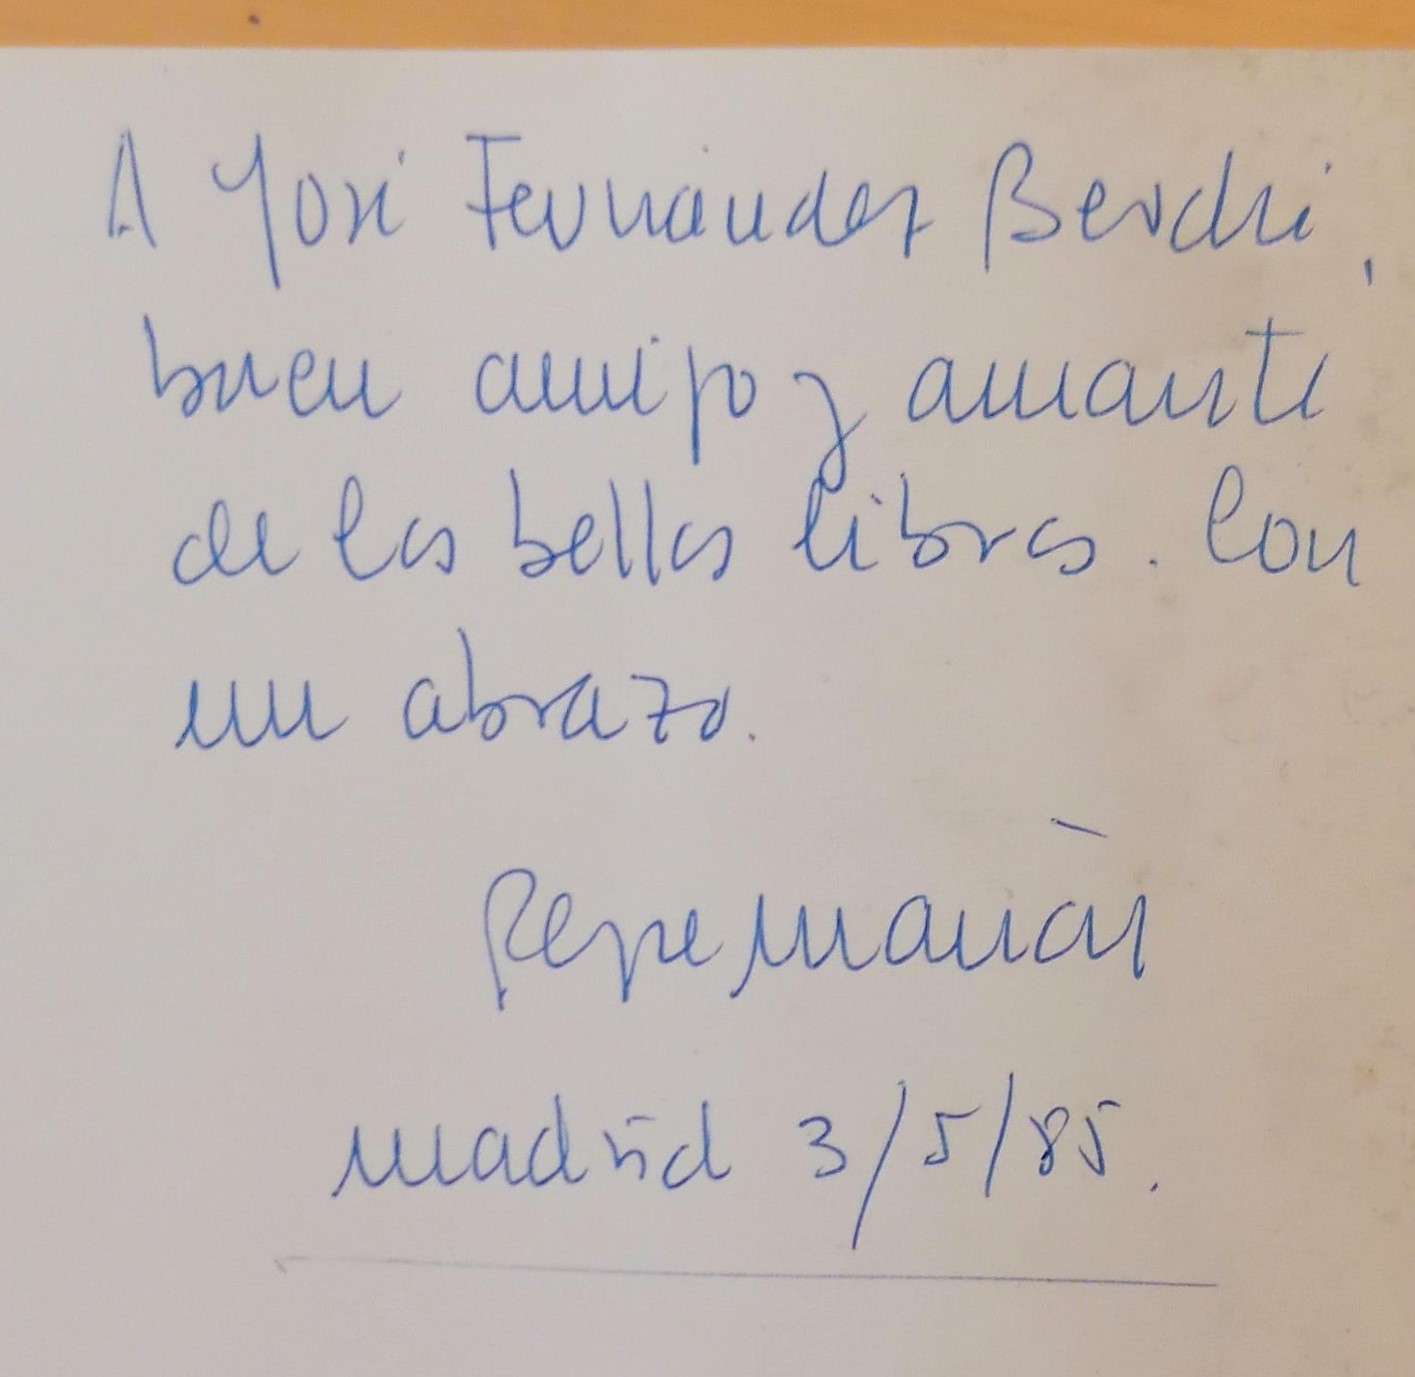 A José Fernández Berchi,
buen amigo y amante
de los bellos libros. Con
un abrazo.
Pepe
Madrid 3/5/85.